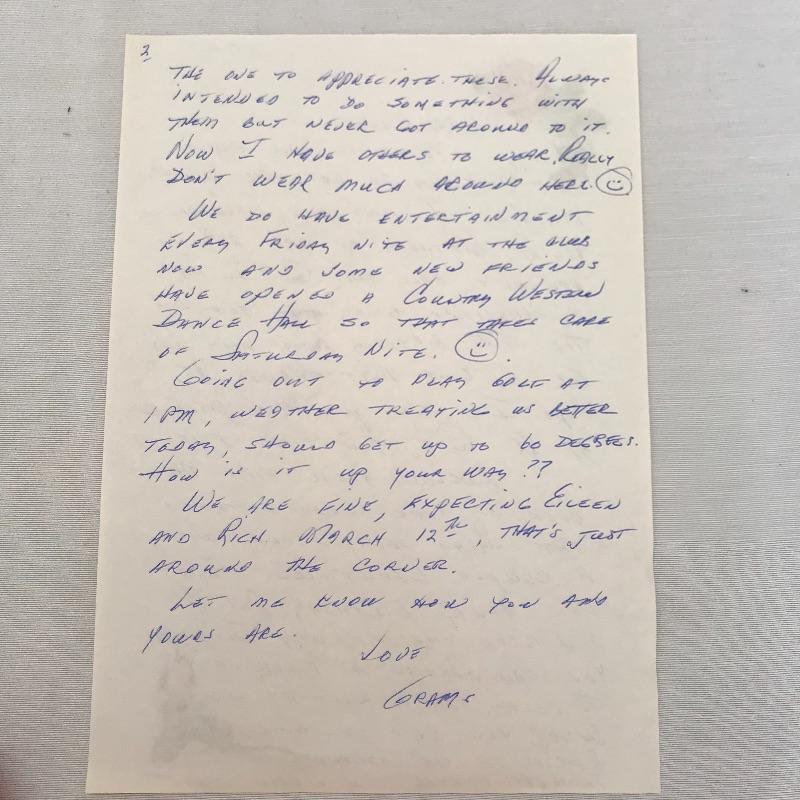 2
THE ONE TO APPRECIATE THESE. ALWAYS
INTENDED TO DO SOMETHING WITH
THEM BUT NEVER GOT AROUND TO IT.
NOW I HAVE OTHERS TO WEAR. REALLY
DON'T WEAR MUCH AROUND HERE.
WE DO HAVE ENTERTAINMENT
EVERY FRIDAY NITE AT THE CLUB
NOW AND SOME NEW FRIENDS
HAVE OPENED A COUNTRY WESTERN
DANCE HALL SO THAT TAKES CARE
OF SATURDAY NITE.
GOING OUT TO PLAY GOLF AT
1 PM, WEATHER TREATING US BETTER
TODAY, SHOULD GET UP TO 60 DEGREES.
HOW IS IT UP YOUR WAY??
WE ARE FINE, EXPECTING EILEEN
AND RICH MARCH 12TH, THAT'S JUST
AROUND THE CORNER.
LET ME KNOW HOW YOU AND
YOURS ARE.
LOVE
GRAMS